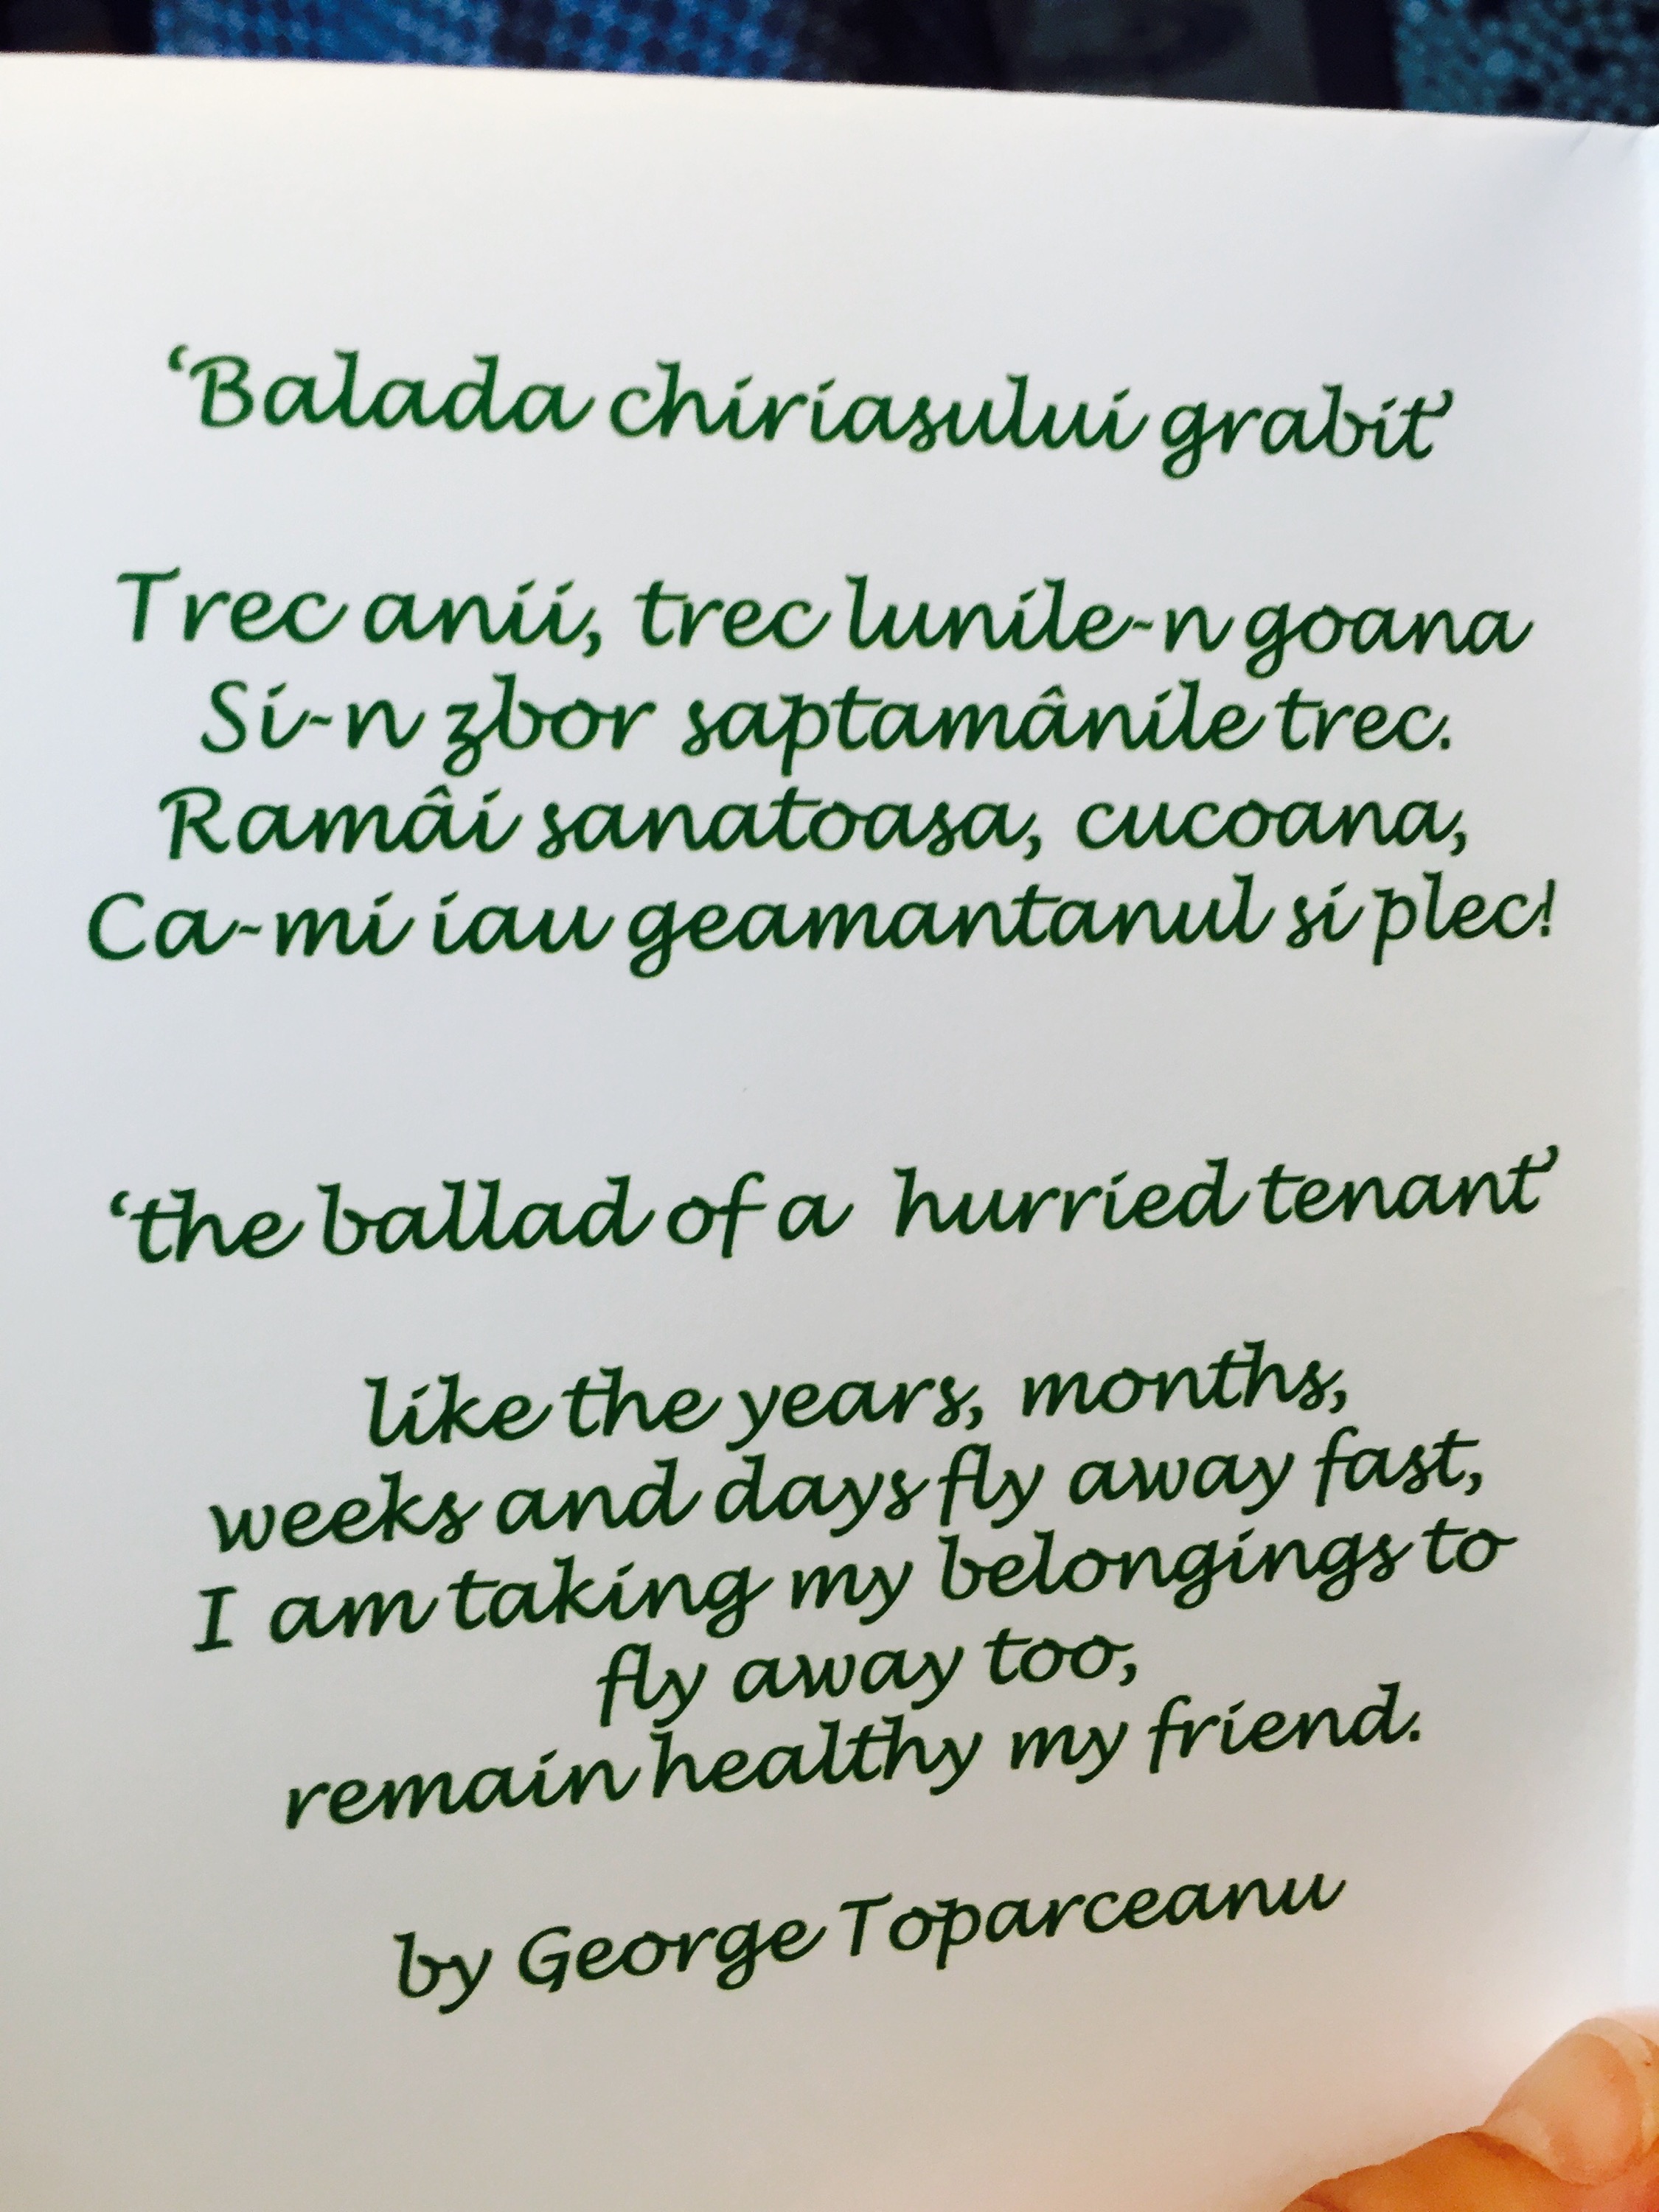 ‘Balada chiriasului grabit’
Trec anii, trec lunile-n goana
Si-n zbor saptamânile trec.
Ramâi sanatoasa, cucoana,
Ca-mi iau geamantanul si plec!
‘the ballad of a hurried tenant’
like the years, months,
weeks and days fly away fast,
I am taking my belongings to
fly away too,
remain healthy my friend.
by George Toparceanu